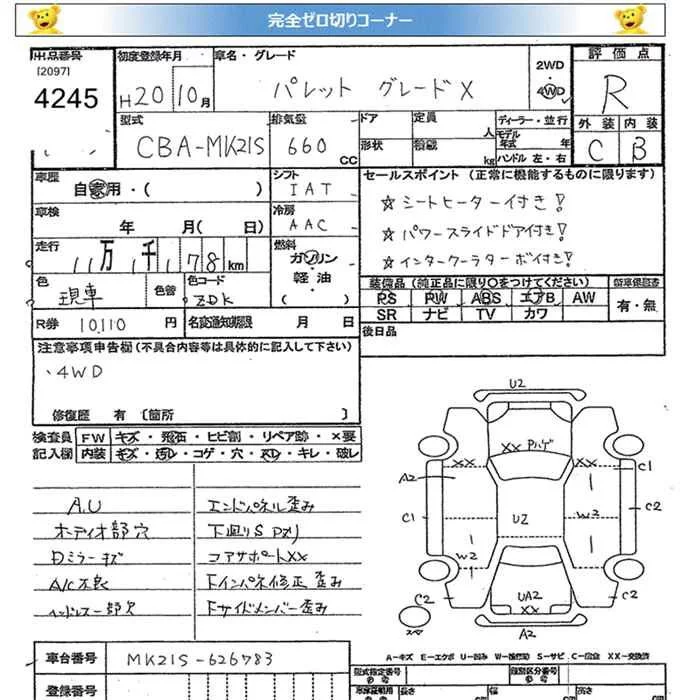 完全ゼロ切りコーナー
出品番号 初度登録年月 車名・グレード 2WD 評価点
[2097]
4245 H20 10月 パレット グレードX 4WD R
型式 排気量 ドア 定員 ディーラー・並行 外装 内装
CBA-MK21S 660 CC 人 モデル年式 年 C B
形状 積載 kg ハンドル 左・右
車歴 自家用・( ) シフト IAT セールスポイント (正常に機能するものに限ります)
車検 年 月( 日) 冷房 AAC ☆シートヒーター付き!
☆パワースライドドア付き!
走行 11万 千178km 燃料 ガソリン・軽油・( ) ☆インタークーラーターボ付き!
色 現車 色替 色コード ZDK 装備品 (純正品に限り〇をつけてください) 新車保証書
PS PW ABS エアB AW 有・無
SR ナビ TV カワ
R券 10,110 円 名変通知期限 月 日 後日品
注意事項申告欄(不具合内容等は具体的に記入して下さい)
、4WD
修復歴 有 [箇所 ]
検査員 FW キズ・飛石・ヒビ割・リペア跡・×要
記入欄 内装 キズ・汚レ・コゲ・穴・スレ・キレ・破レ
A.U エンドパネル歪み
オーディオ部穴 下廻りS
Dミラーキズ コアサポートXX
A/C不良 Fインパネ修正歪み
ハンドル一部欠 Fサイドメンバー歪み
U2
XX Pハゲ
XX XX
A2 C1
C1 U2 W2 C2
W2
C2 UA2 C2
XX
スペア A2
A-キズ E-エクボ U-凹み W-補修跡 S-サビ C-腐食 XX-交換済
車台番号 MK21S-626783
型式指定番号 類別区分番号
参考 参考
登録番号 長さ 幅 高さ